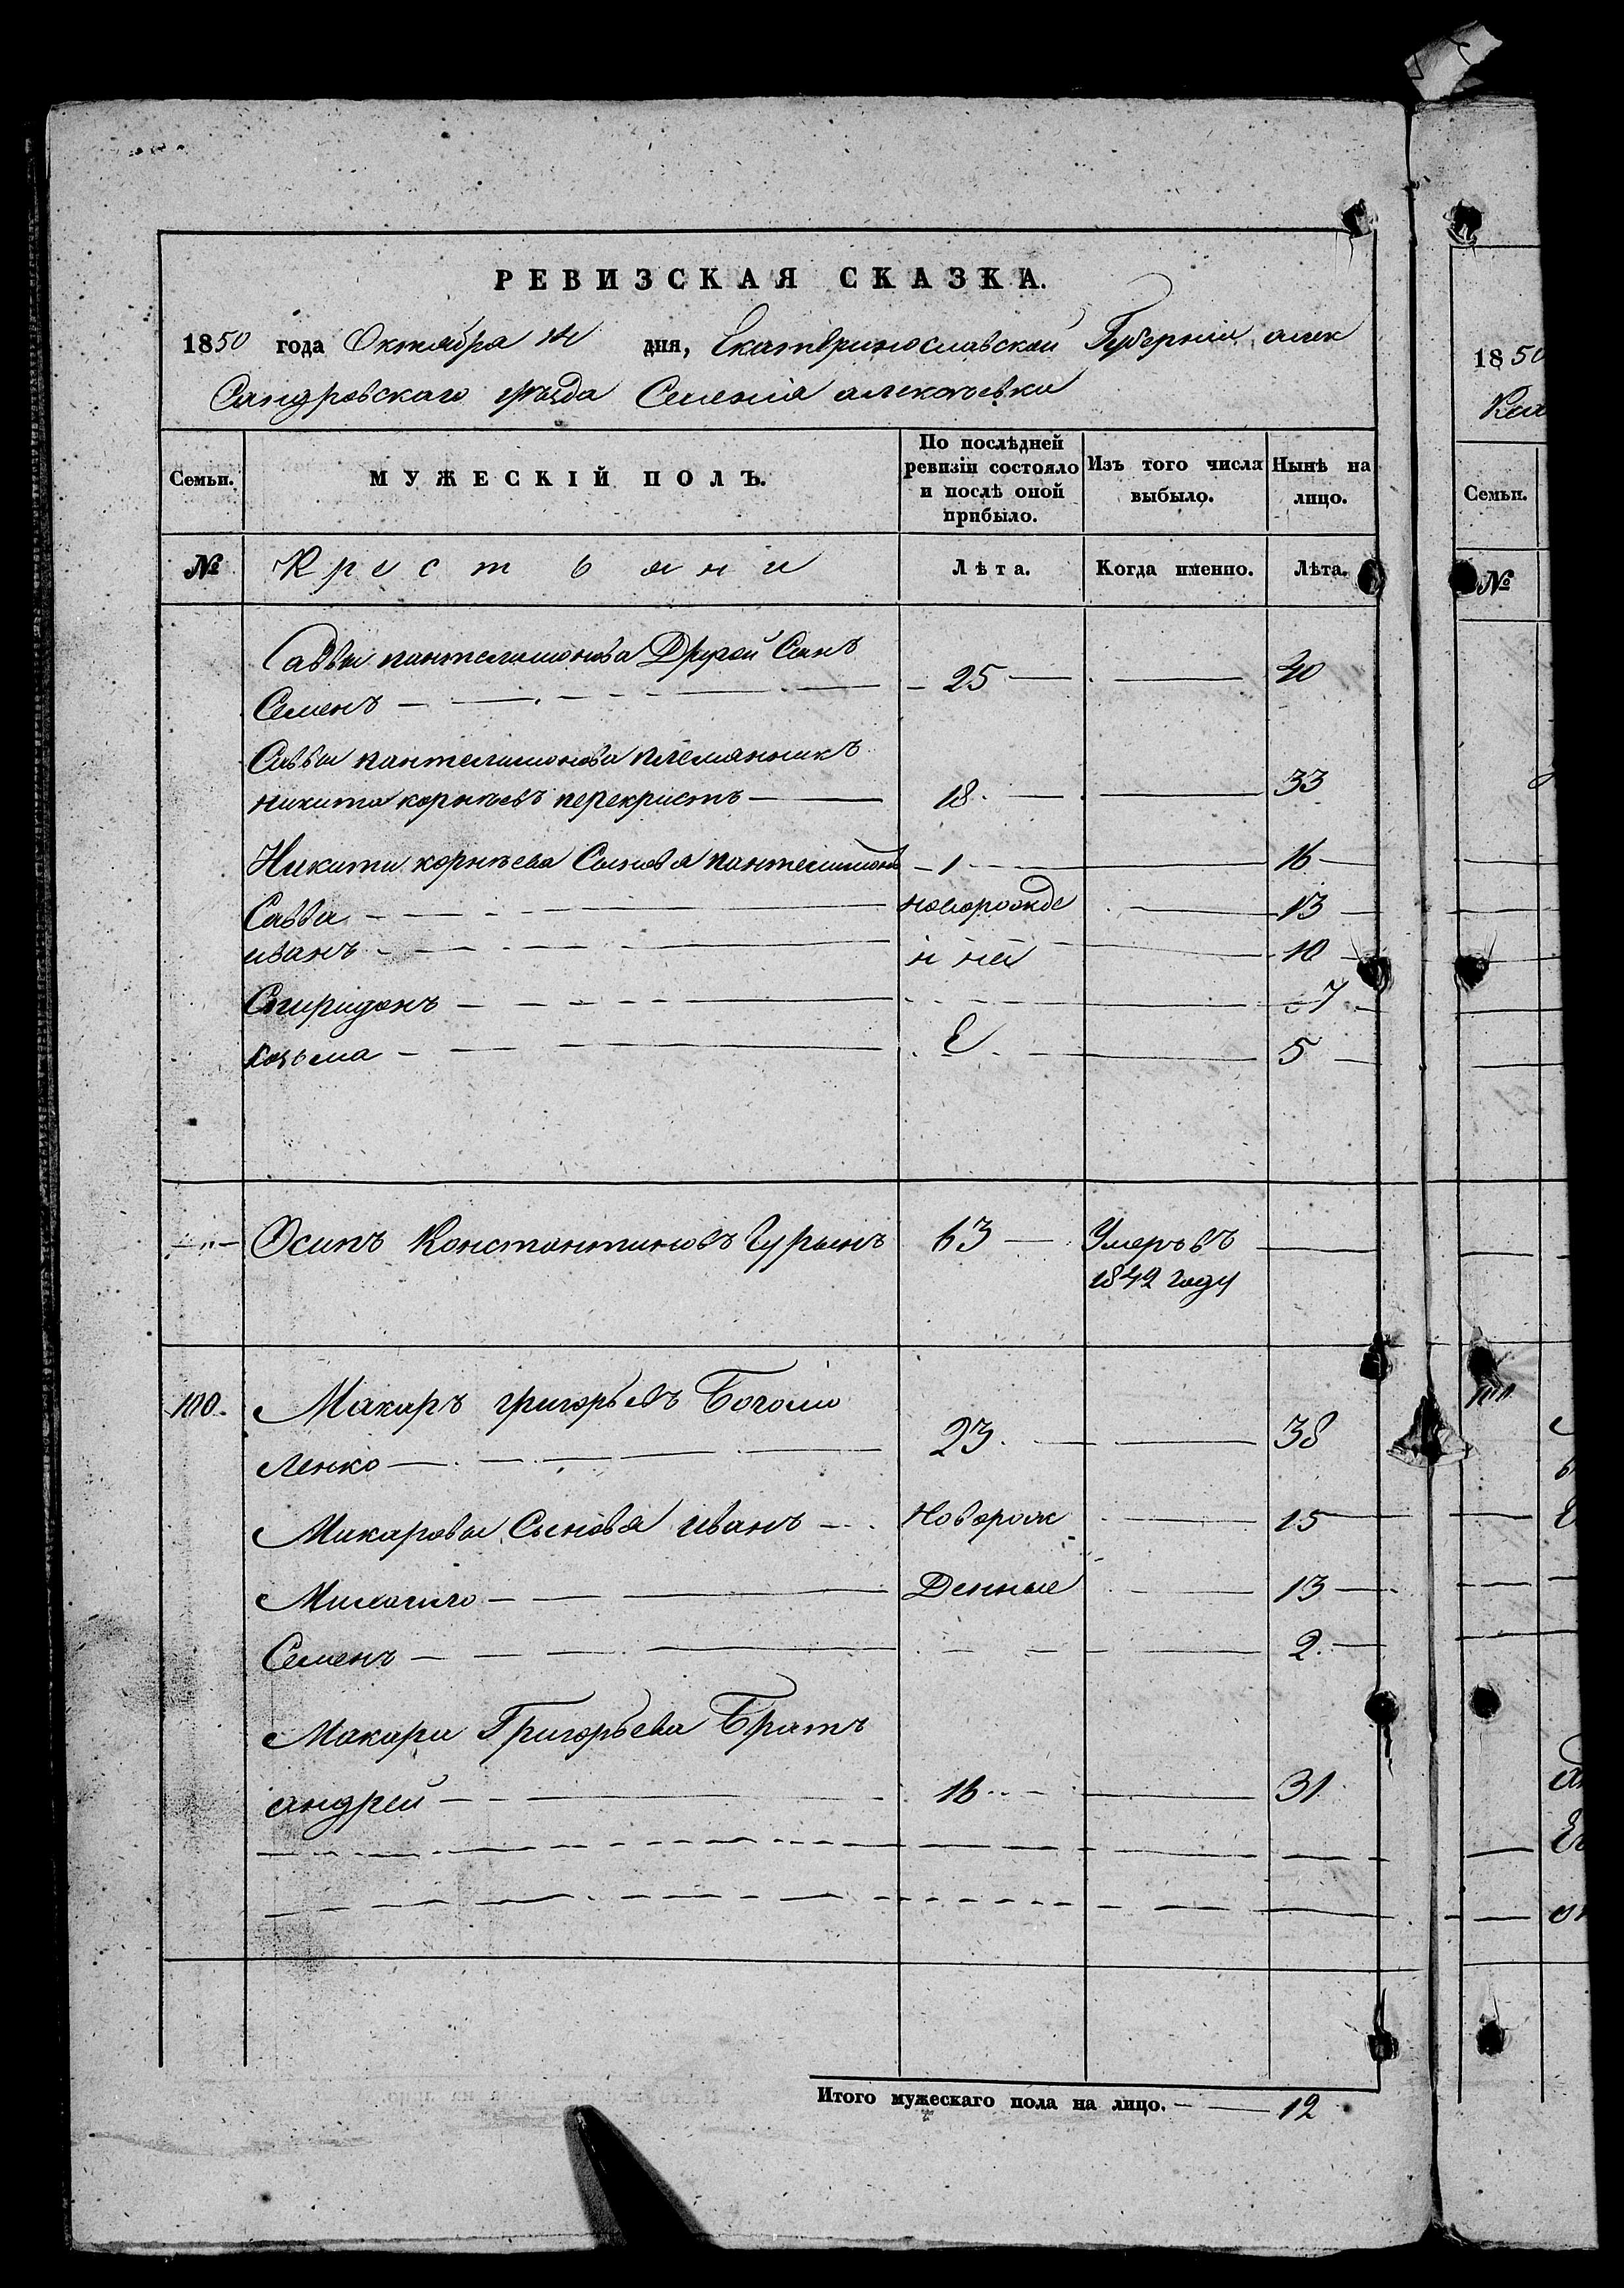 РЕВИЗСКАЯ СКАЗКА.
1850 года Октября дня, Екатеринославской Губернии алек
Сандровскаго уѣзда Селенія алексѣевки
Семьи.
МУЖЕСКІЙ ПОЛЪ.
По послѣдней ревизіи состояло и послѣ оной прибыло.
Изъ того числа выбыло.
Нынѣ на лицо.
№ Крестьяни Лѣта. Когда именно. Лѣта.
Саввы пантелимонова Другой Сынъ
Семенъ 25 40
Саввы пантелимонова племянникъ
никита корнѣевъ перекристъ 18 33
Никиты корнѣева Сыновья пантелимонъ 1 16
Савва новорожде 13
иванъ н ны 10
Спиридонъ 7
козьма Е 5
Осипъ Константиновъ Гурынъ 63 Умеръ въ
1842 году
100. Макаръ григорьевъ Богомо
ленко 23 38
Макаровы Сыновья иванъ Новорож 15
Михайло Денные 13
Семенъ 2
Макара Григорьева Братъ
андрей 16 31
Итого мужескаго пола на лицо. 12
1850
Семьи.
№